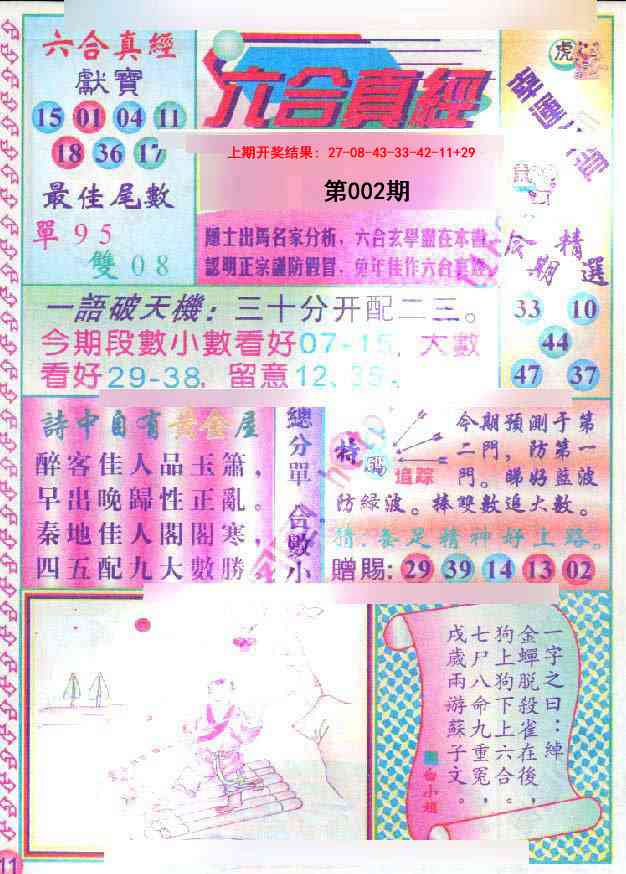 六合真經
獻寶
15 01 04 11
18 36 17
最佳尾數
單 9 5
雙 0 8
六合真經
上期开奖结果: 27-08-43-33-42-11+29
第002期
隱士出馬名家分析，六合玄學盡在本書
認明正宗謹防假冒，兔年佳作六合真經
虎
幸運
今期精選
33 10
44
47 37
一語破天機：三十分开配二三。
今期段數小數看好07-15，大數
看好29-38，留意12、35。
詩中自有黃金屋
醉客佳人品玉簫，
早出晚歸性正亂。
秦地佳人閣閣寒，
四五配九大數勝。
總分單 合數小
特碼
追踪
今期預測于第
二門，防第一
門。睇好藍波
防緑波。捧雙數追大數。
猜：養足精神好上路。
贈賜：29 39 14 13 02
一字之曰：綽
金蟬脱殺雀在後，
狗上狗下上六合。
七尸八命九重冤，
戌歲雨游蘇子文。
白小姐
11